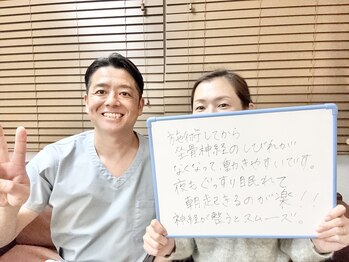 施術してから
坐骨神経のしびれが
なくなって、動きやすいです。
夜もぐっすり眠れて
朝起きるのが楽!!
神経が整うとスムーズ。